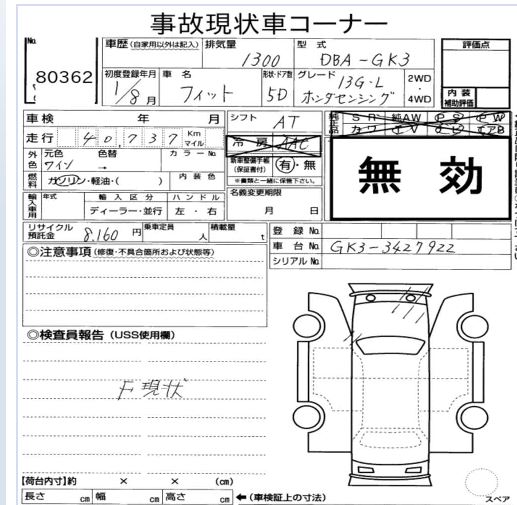 事故現状車コーナー
No. 80362
車歴 (自家用以外は記入) 排気量 1300 型式 DBA-GK3
評価点
初度登録年月 1/8月 車名 フィット 形状・ドア数 5D グレード 13G・L ホンダセンシング 2WD 4WD
内装 補助評価
車検 年 月 シフト AT
走行 40,737 Km マイル 冷房 AAC
無効
外色 元色 ワイン 色替 → カラーNo.
新車整備手帳 (保証書付) 有・無
※書類と一緒に保管下さい。
燃料 ガソリン・軽油・( ) 内装色
名義変更期限 月 日
輸入車用 年式 輸入区分 ディーラー・並行 ハンドル 左・右
リサイクル預託金 8,160円 乗車定員 人 積載量 t
登録No.
車台No. GK3-3427922
シリアルNo.
◎注意事項 (修復・不具合箇所および状態等)
◎検査員報告 (USS使用欄)
F現状
【荷台内寸】約 × × (cm)
長さ cm 幅 cm 高さ cm ←(車検証上の寸法)
スペア